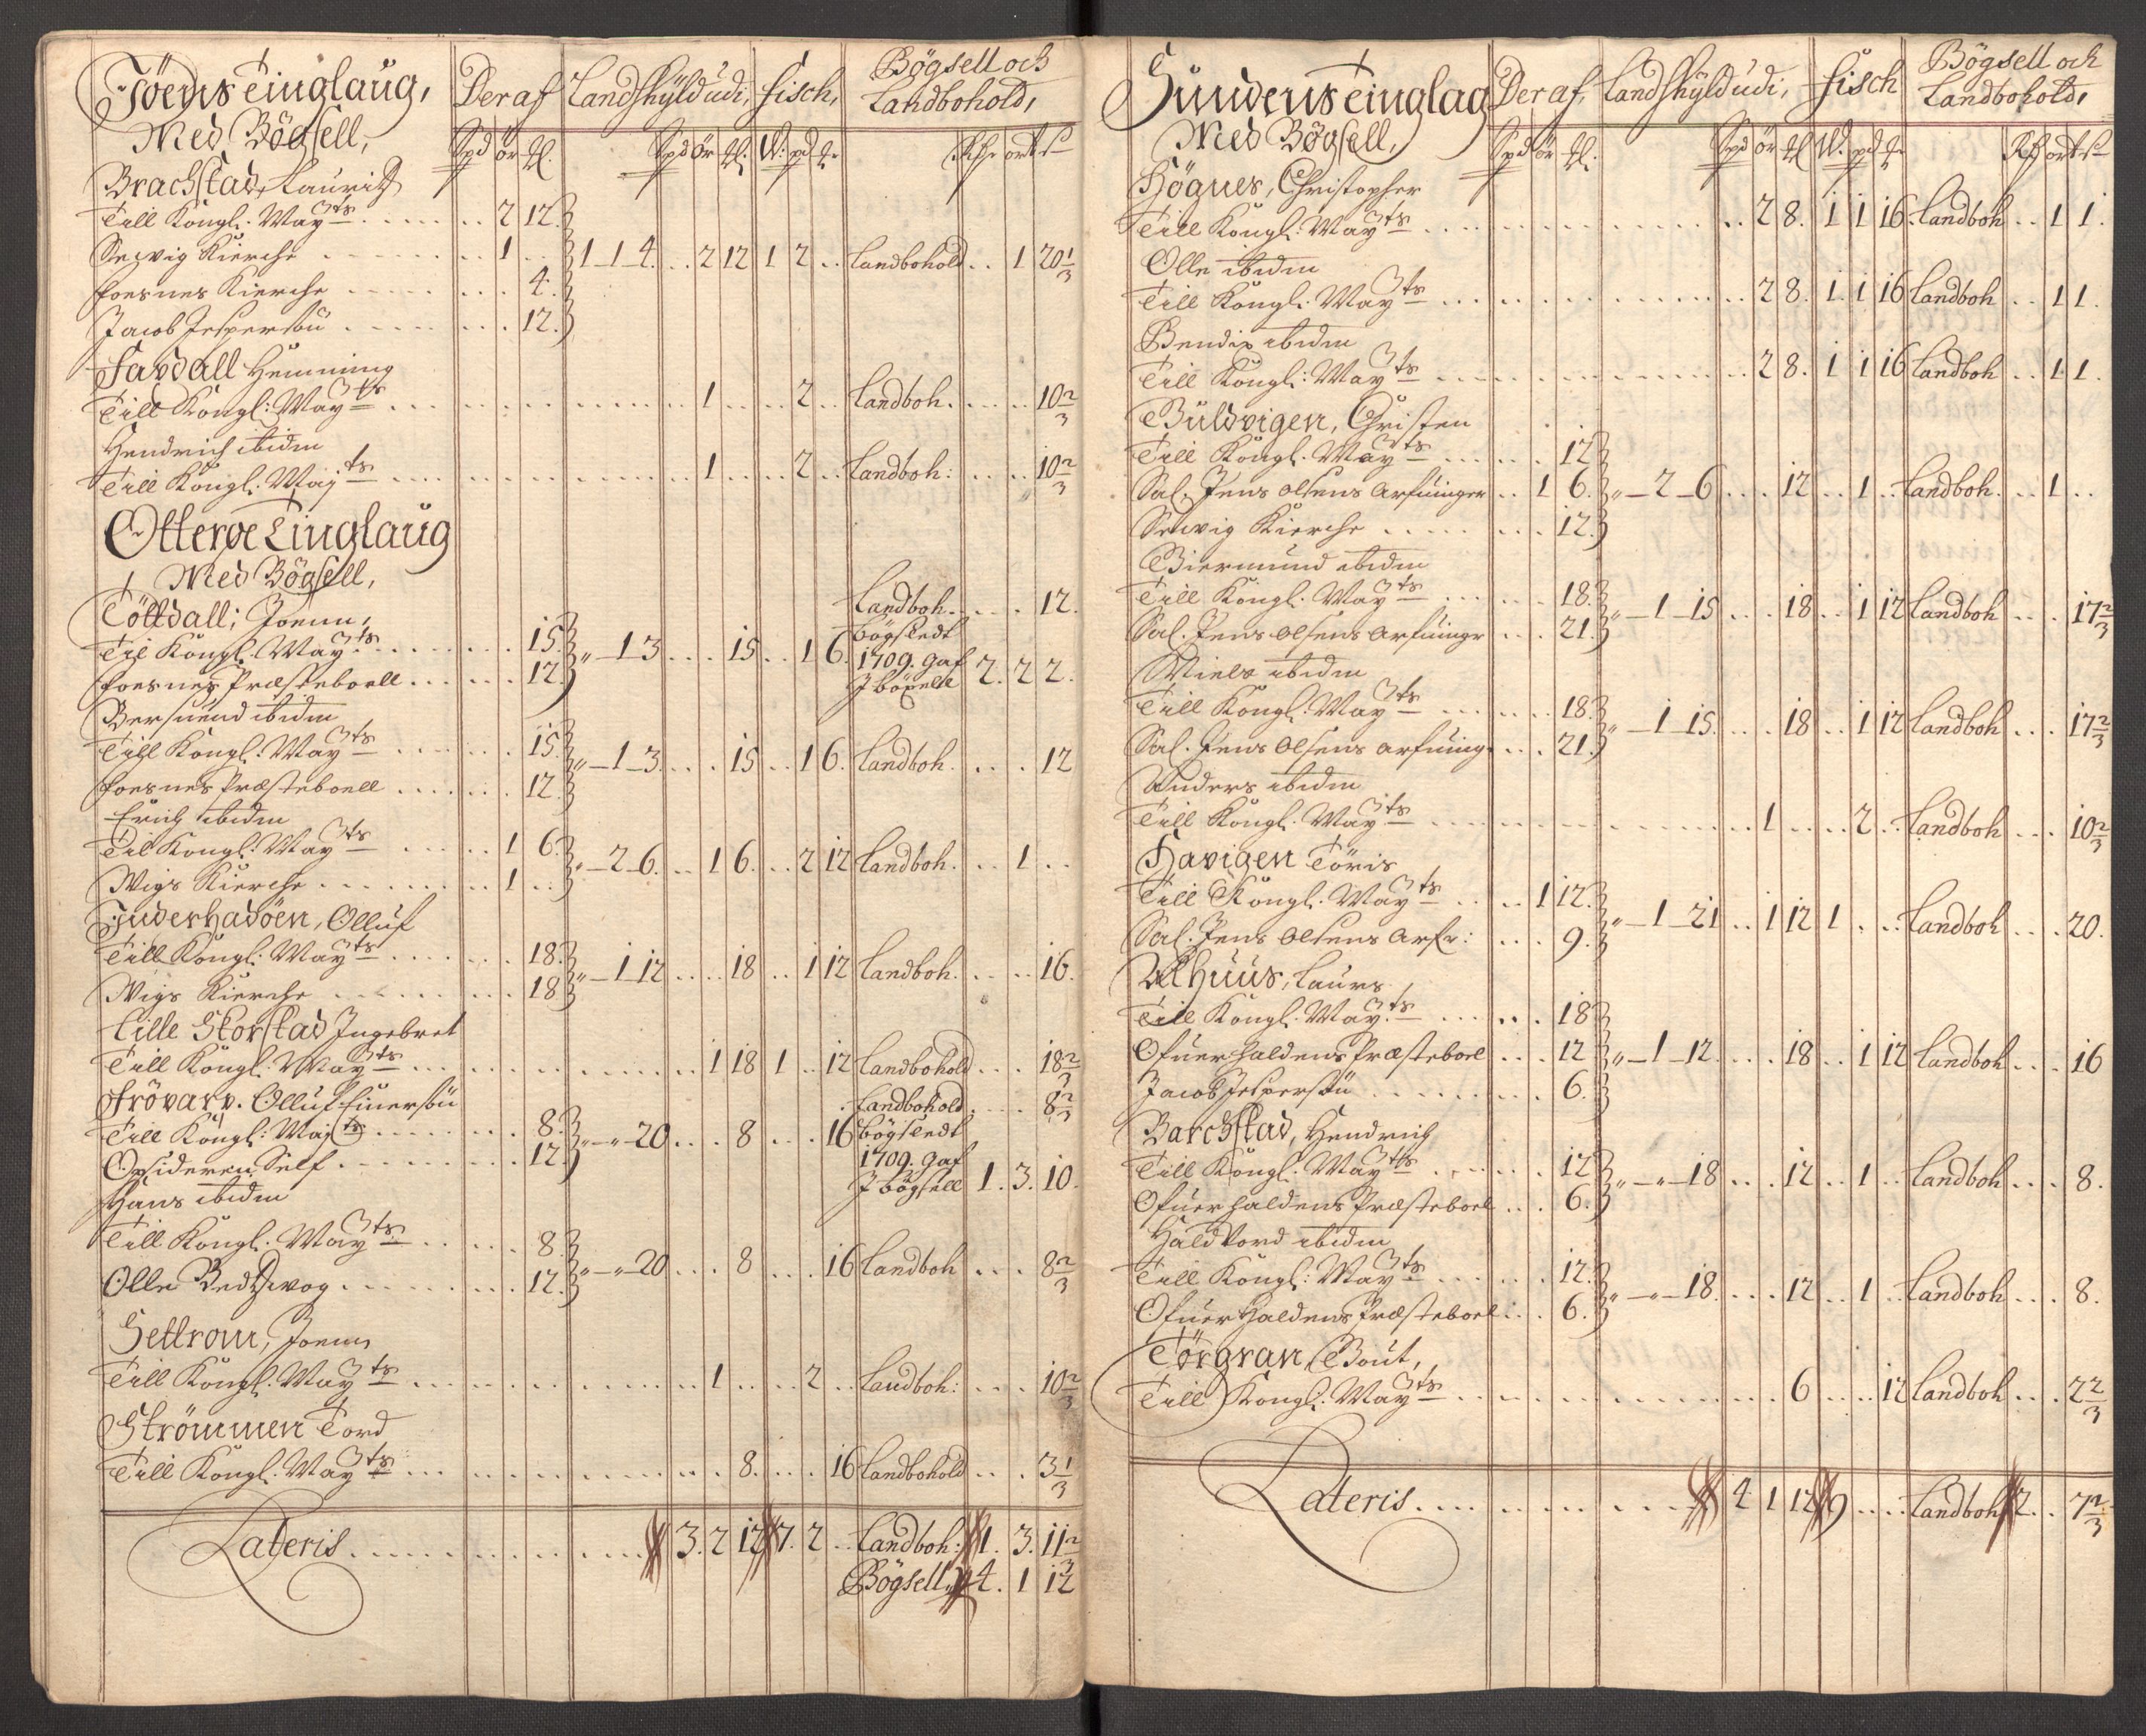 Föens tinglaug, Der af Landskyld udi, fisch, Bögsell och Landbohold,
Med Bögsell, Spd ör ɱl. Spd ör ɱl. W. pd ɱ Rdr ort s
Brachstad, Lauritz
Till Kongl: May ts . . . . . 2 12.
Serwig Kierche . . . . . 1 . . 1-1-4. . . 2 12 1 2 . . Landbohold . . 1 20 1/3
foesnes Kierche . . . . . 4.
Jacob Jespersøn . . . . . 12.
Favdall Hemming
Till Kongl: May ts . . . . . 1 . . . . 2 . . Landboh. . . . 10 2/3
Hendrich ibidm
Till Kongl: Maj ts . . . . . 1 . . . . 2 . . Landboh: . . . 10 2/3
Otterøe Tinglaug
Med Bögsell,
Töttdall; Joenn, Landboh. . . . 12.
Til Kongl. May ts . . . . . 15. „-1 3 . . . 15 . . 1 6. bögsledt
foesnes Præsteboell . . . . . 12. 1709. gaf J böxell 2. 2 2.
Bersuend ibidm
Till Kongl: May ts . . . . . 15. „-1-3. . . . 15 . . 1 6. Landboh. . . . 12
foesnes Præsteboell . . . . . 12.
Erich ibidm
Til Kongl: May ts . . . . . 1 6. „-2-6. . . 1 6. . . 2 12 Landboh. . . 1 . .
Wigs Kierche . . . . . 1 . .
Inderhadöen, Olluf
Till Kongl: May ts . . . . . 18. „-1 12 . . . 18 . . 1 12 Landboh. . . . 16.
Wigs Kierche . . . . . 18
Lille Storstad Ingebret
Till Kongl: May ts . . . . . 1 18 1 . . 12 Landbohold . . . 18 2/3
Frövarv. Olluf Einersøn . Landbohold . . . 8 2/3
Till Kongl: Maj ts . . . . . 8. „-„-20 . . . 8 . . . 16 bögsledt
Opsideren Self . . . . . 12. 1709. gaf
Hans ibidm J bögsell 1. 3. 10.
Till Kongl. May ts . . . . . 8 „-„-20 . . . 8 . . . 16 Landboh . . . 8 2/3
Olle Redtzwog . . . . . 12.
Settrom, Joenn
Till Kongl. May ts . . . . . 1 . . . . 2 . . Landboh: . . . 10 2/3
Strömmen Tord
Till Kongl. May ts . . . . . 8. . . . 16 Landbohold . . . 3 1/3
Lateris . . . . . 3. 2 12 7. 2 . . Landboh: 1. 3. 11 2/3
Bögsell. 4. 1 12
Sundens tinglag Der af, Landskyld udi, fisch Bögsell och Landbohold,
Med Bögsell, Spd ör ɱl. Spd ör ɱl W. pd ɱ Rdr ort s
Högnes, Christopher
Till Kongl: May ts . . . . . 2 8. 1 1 16. Landboh . . 1 1.
Olle ibidm
Till Kongl: May ts . . . . . 2 8. 1. 1 16 Landboh . . 1 1.
Bendix ibidm
Till Kongl: May ts . . . . . 2 8. 1 1 16 Landboh . . 1 1.
Buldvigen, Christen
Till Kongl. May ts . . . . . 12
Sal. Jens Olsens Arfuinger . . 1 6. „-2-6 . . . 12 . . 1 . . Landboh. . . 1 . .
Serwig Kierche . . . . . 12.
Biermund ibidm
Till Kongl. May ts . . . . . 18. „-1-15 . . . 18 . . 1 12 Landboh . . . 17 2/3
Sal. Jens Olsens Arfuingr . . . 21.
Niels ibidm
Till Kongl. May ts . . . . . 18. „-1-15. . . . 18 . . 1 12 Landboh . . . 17 2/3
Sal. Jens Olsens Arfuing: . . . 21.
Anders ibidm
Till Kongl. May ts . . . . . 1 . . . . 2 . . Landboh . . . 10 2/3
Havigen Töris
Till Kongl. May ts . . . 1 12. „-1-21 . . 1 12 1 . . . Landboh . . . 20.
Sal: Jens Olsens Arfr: . . . 9.
Alhuus, Laurs
Till Kongl. May ts . . . . . 18
Ofuerhaldens Præsteboel . . . 12 „-1-12. . . . 18 . . 1 12 Landboh . . . 16
Jacob Jespersøn . . . . . 6.
Barchstad, Hendrich
Till Kongl. May ts . . . . . 12 „-„-18 . . . 12 . . 1 . . Landboh . . . 8.
Ofuerhaldens Præsteboel . . . 6.
Haldvord ibidm
Till Kongl: May ts . . . . . 12. „-„-18. . . . 12 . . 1 . . Landboh . . . 8.
Ofuerhaldens Præsteboel . . . 6.
Törgran, Bout,
Till Kongl: May ts . . . . . 6 . . . . 12 Landboh . . . 2 2/3
Lateris . . . . . 4 1 12 9 . . . . Landboh 2. . 7 2/3